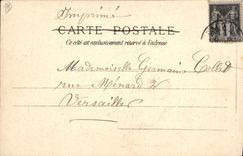 Imprimé
CARTE POSTALE
Ce côté est exclusivement réservé à l'adresse
Mademoiselle Germaine Collet
rue Ménard 2
Versailles